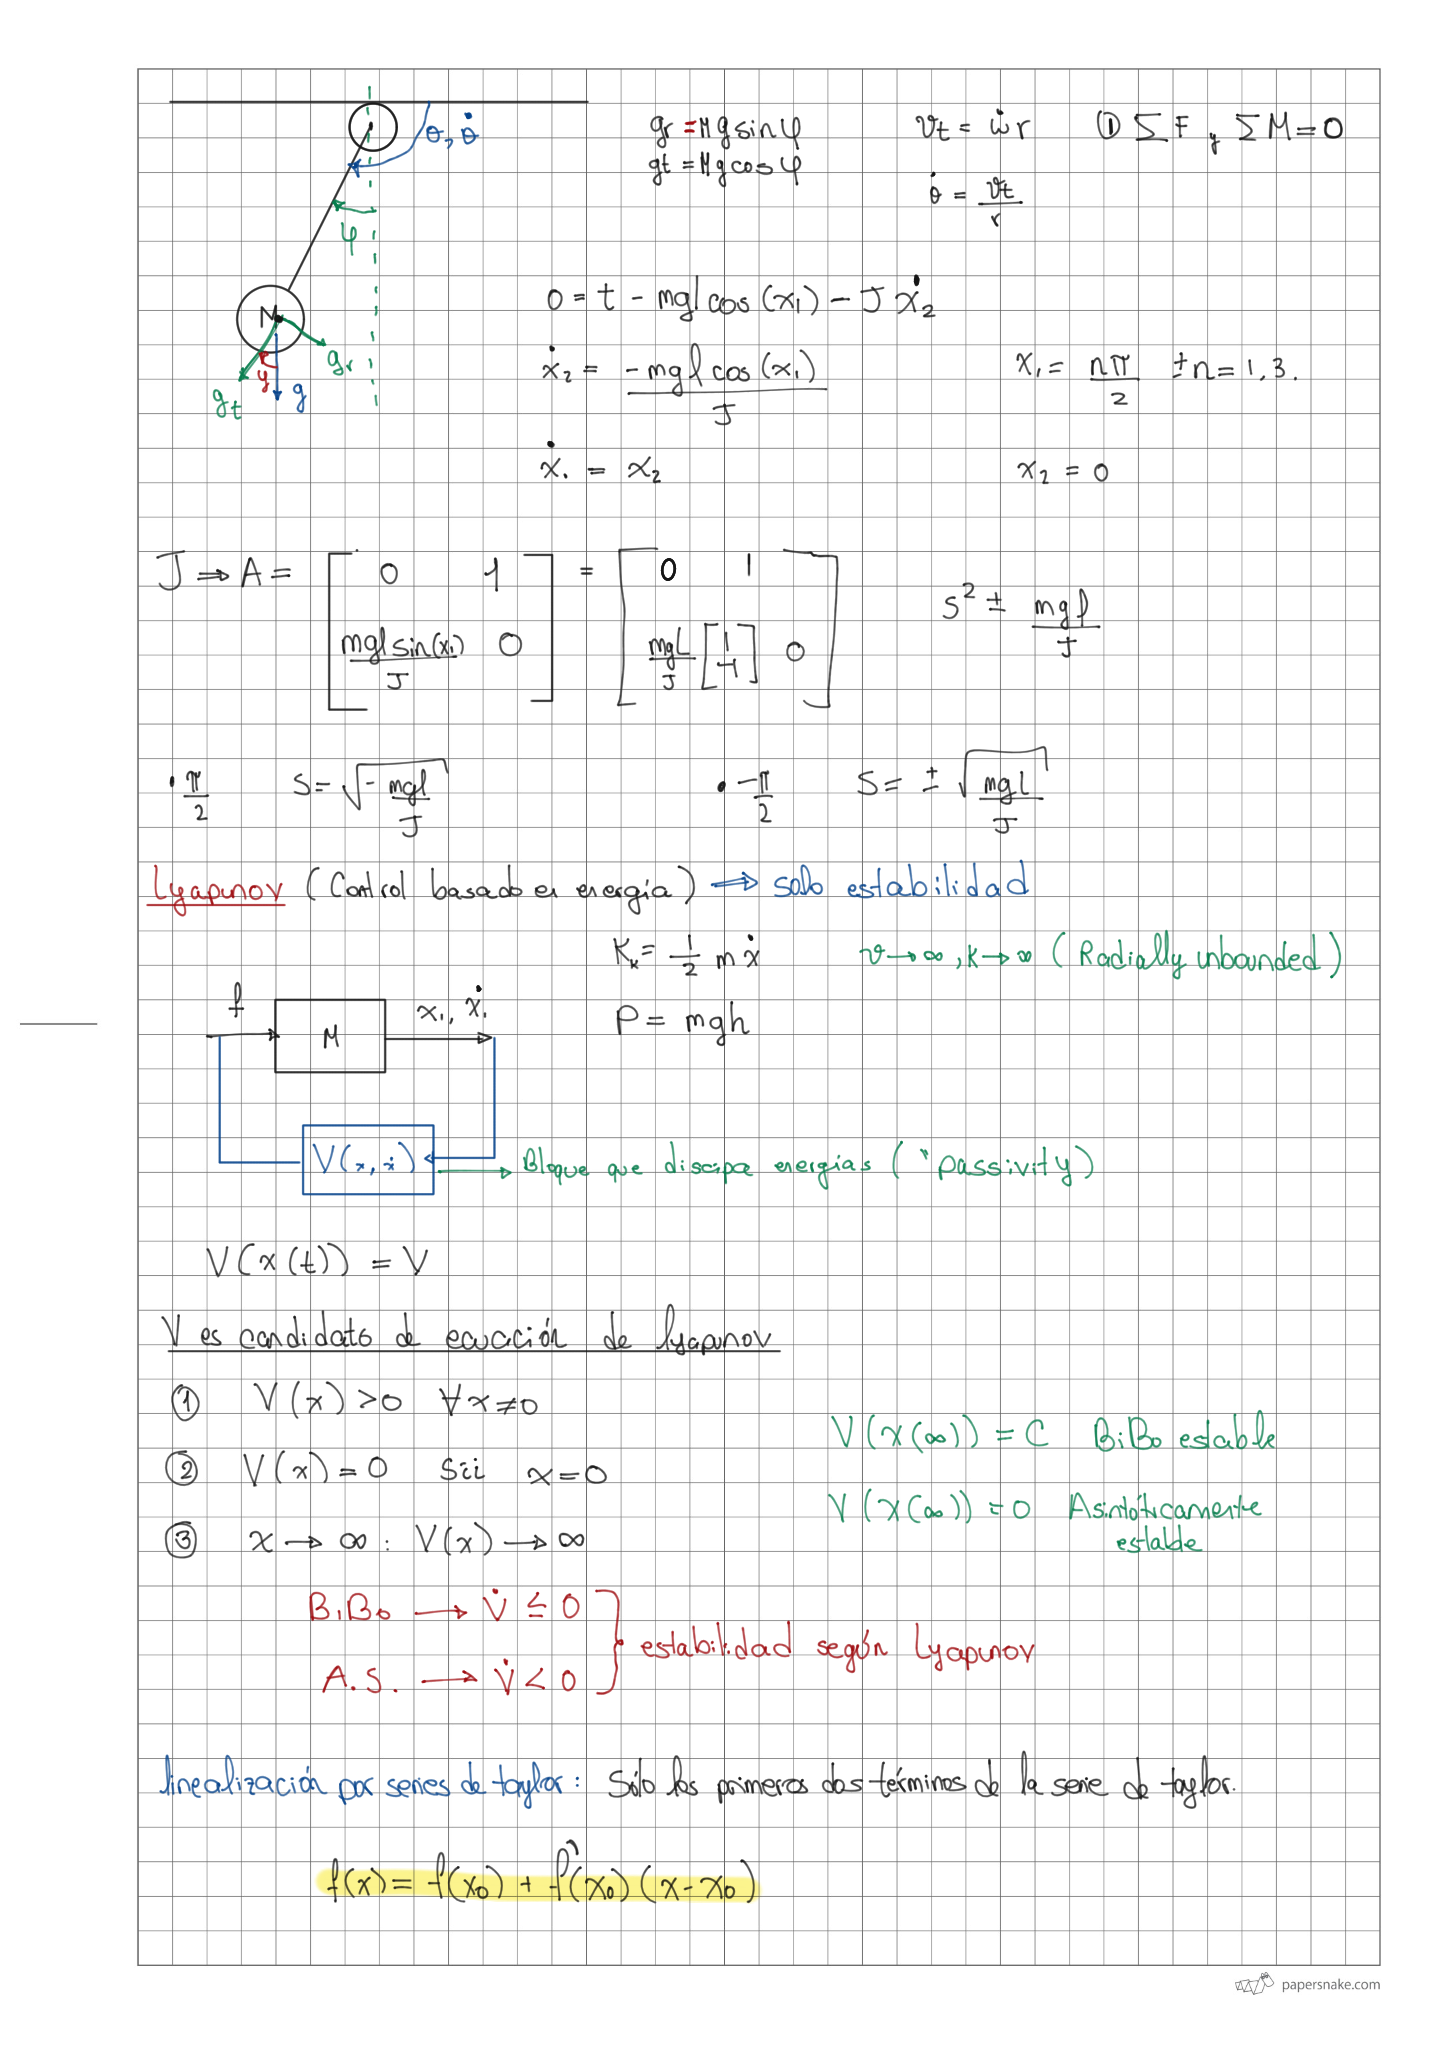 θ, θ̇
φ
M
gr
gt
φ
g
gr = Mg sin φ
gt = Mg cos φ
vt = ẇ r
θ̇ = vt/r
① ΣF y ΣM = 0
0 = t - mgl cos(x₁) - J ẋ₂
ẋ₂ = -mgl cos(x₁) / J
x₁ = nπ/2 ±n = 1,3.
ẋ₁ = x₂
x₂ = 0
J ⇒ A = [0 1; mgl sin(x₁)/J 0] = [0 1; mgL/J [1 -1] 0]
s² ± mgl/J
· π/2 S = √(-mgl/J)
· -π/2 S = ± √(mgL/J)
Lyapunov (Control basado en energía) ⇒ solo estabilidad
Kₓ = 1/2 m ẋ
v → ∞, K → ∞ (Radially unbounded)
P = mgh
f
M
x₁, ẋ₁
V(x, ẋ)
Bloque que discipa energías ("passivity)
V(x(t)) = V
V es candidato de ecuación de lyapunov
① V(x) > 0 ∀x ≠ 0
② V(x) = 0 Sii x = 0
③ x → ∞ : V(x) → ∞
V(x(∞)) = C BiBo estable
V(x(∞)) = 0 Asintóticamente
estable
BiBo → V̇ ≤ 0
A.S. → V̇ < 0
estabilidad según Lyapunov
linealización por series de taylor: Sólo los primeros dos términos de la serie de taylor.
f(x) = f(x₀) + f'(x₀)(x - x₀)
papersnake.com